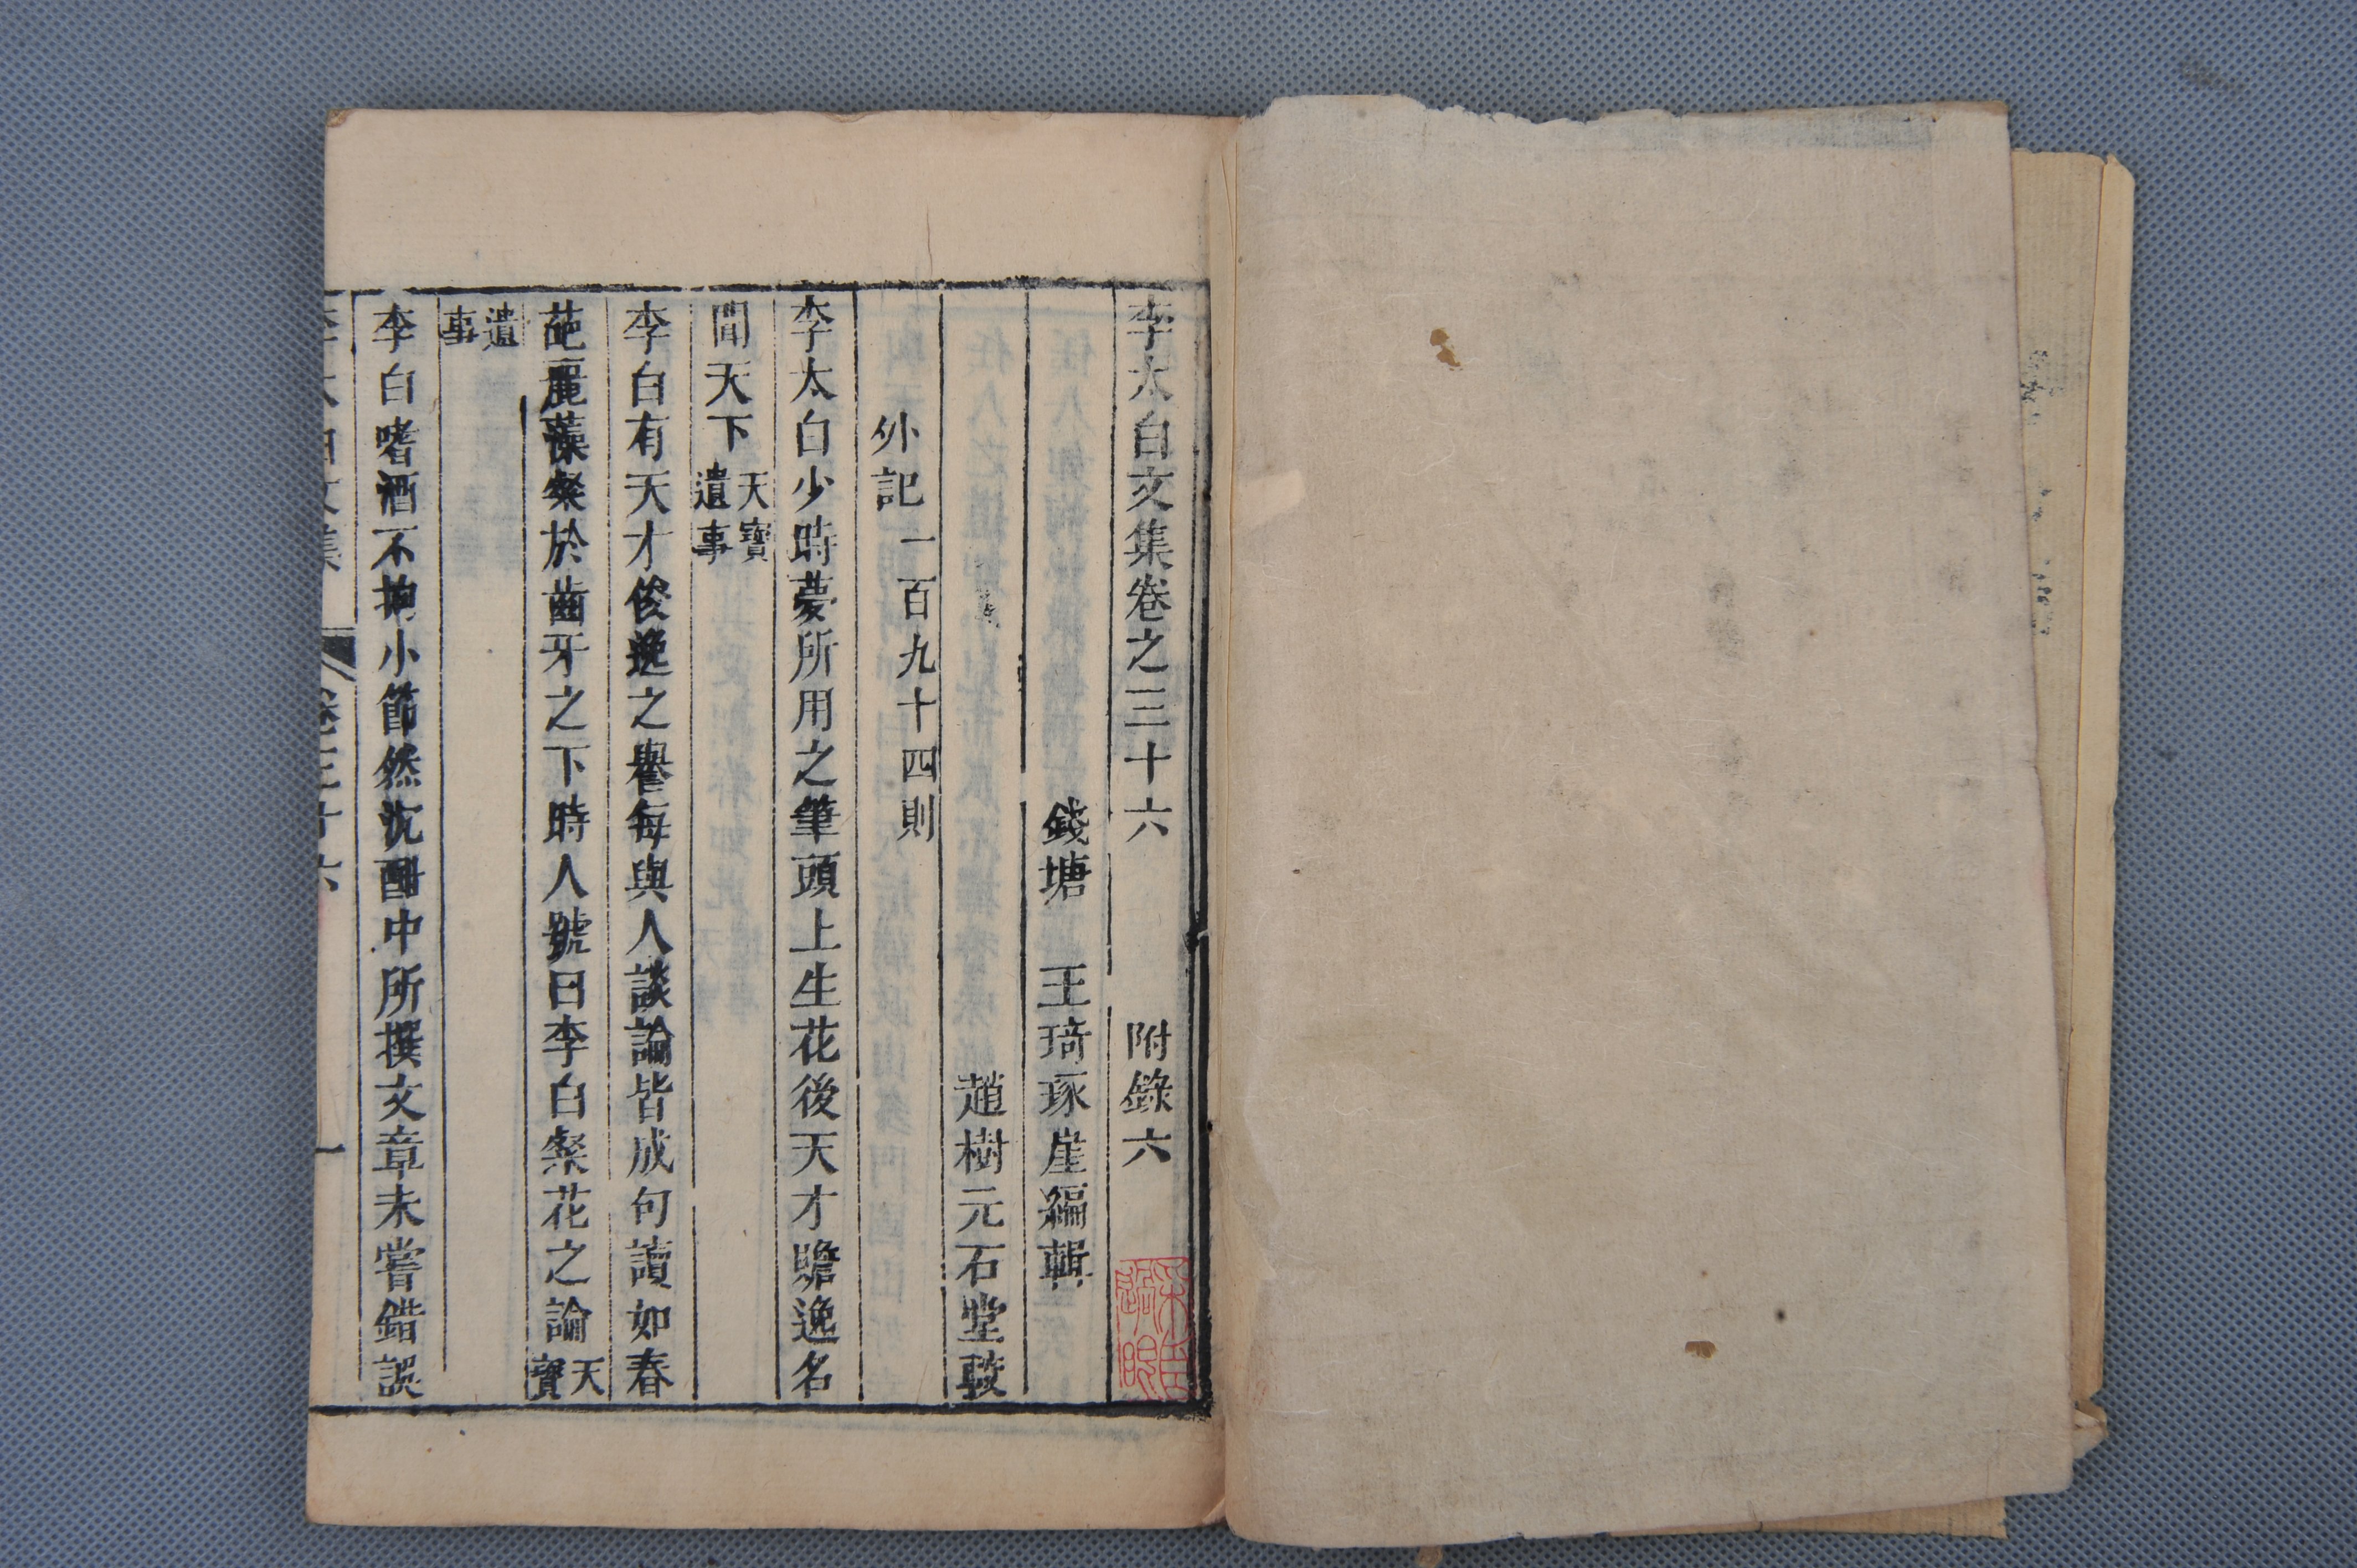 李太白文集卷之三十六 附錄六
錢塘 王琦琢崖編輯
趙樹元石堂敼
外記一百九十四則
李太白少時夢所用之筆頭上生花後天才贍逸名
聞天下天寶遺事
李白有天才俊逸之譽每與人談論皆成句讀如春
葩麗藻粲於齒牙之下時人號曰李白粲花之論天寶
遺事
李白嗜酒不拘小節然沈酣中所撰文章未嘗錯誤
李太白文集 卷三十六 一